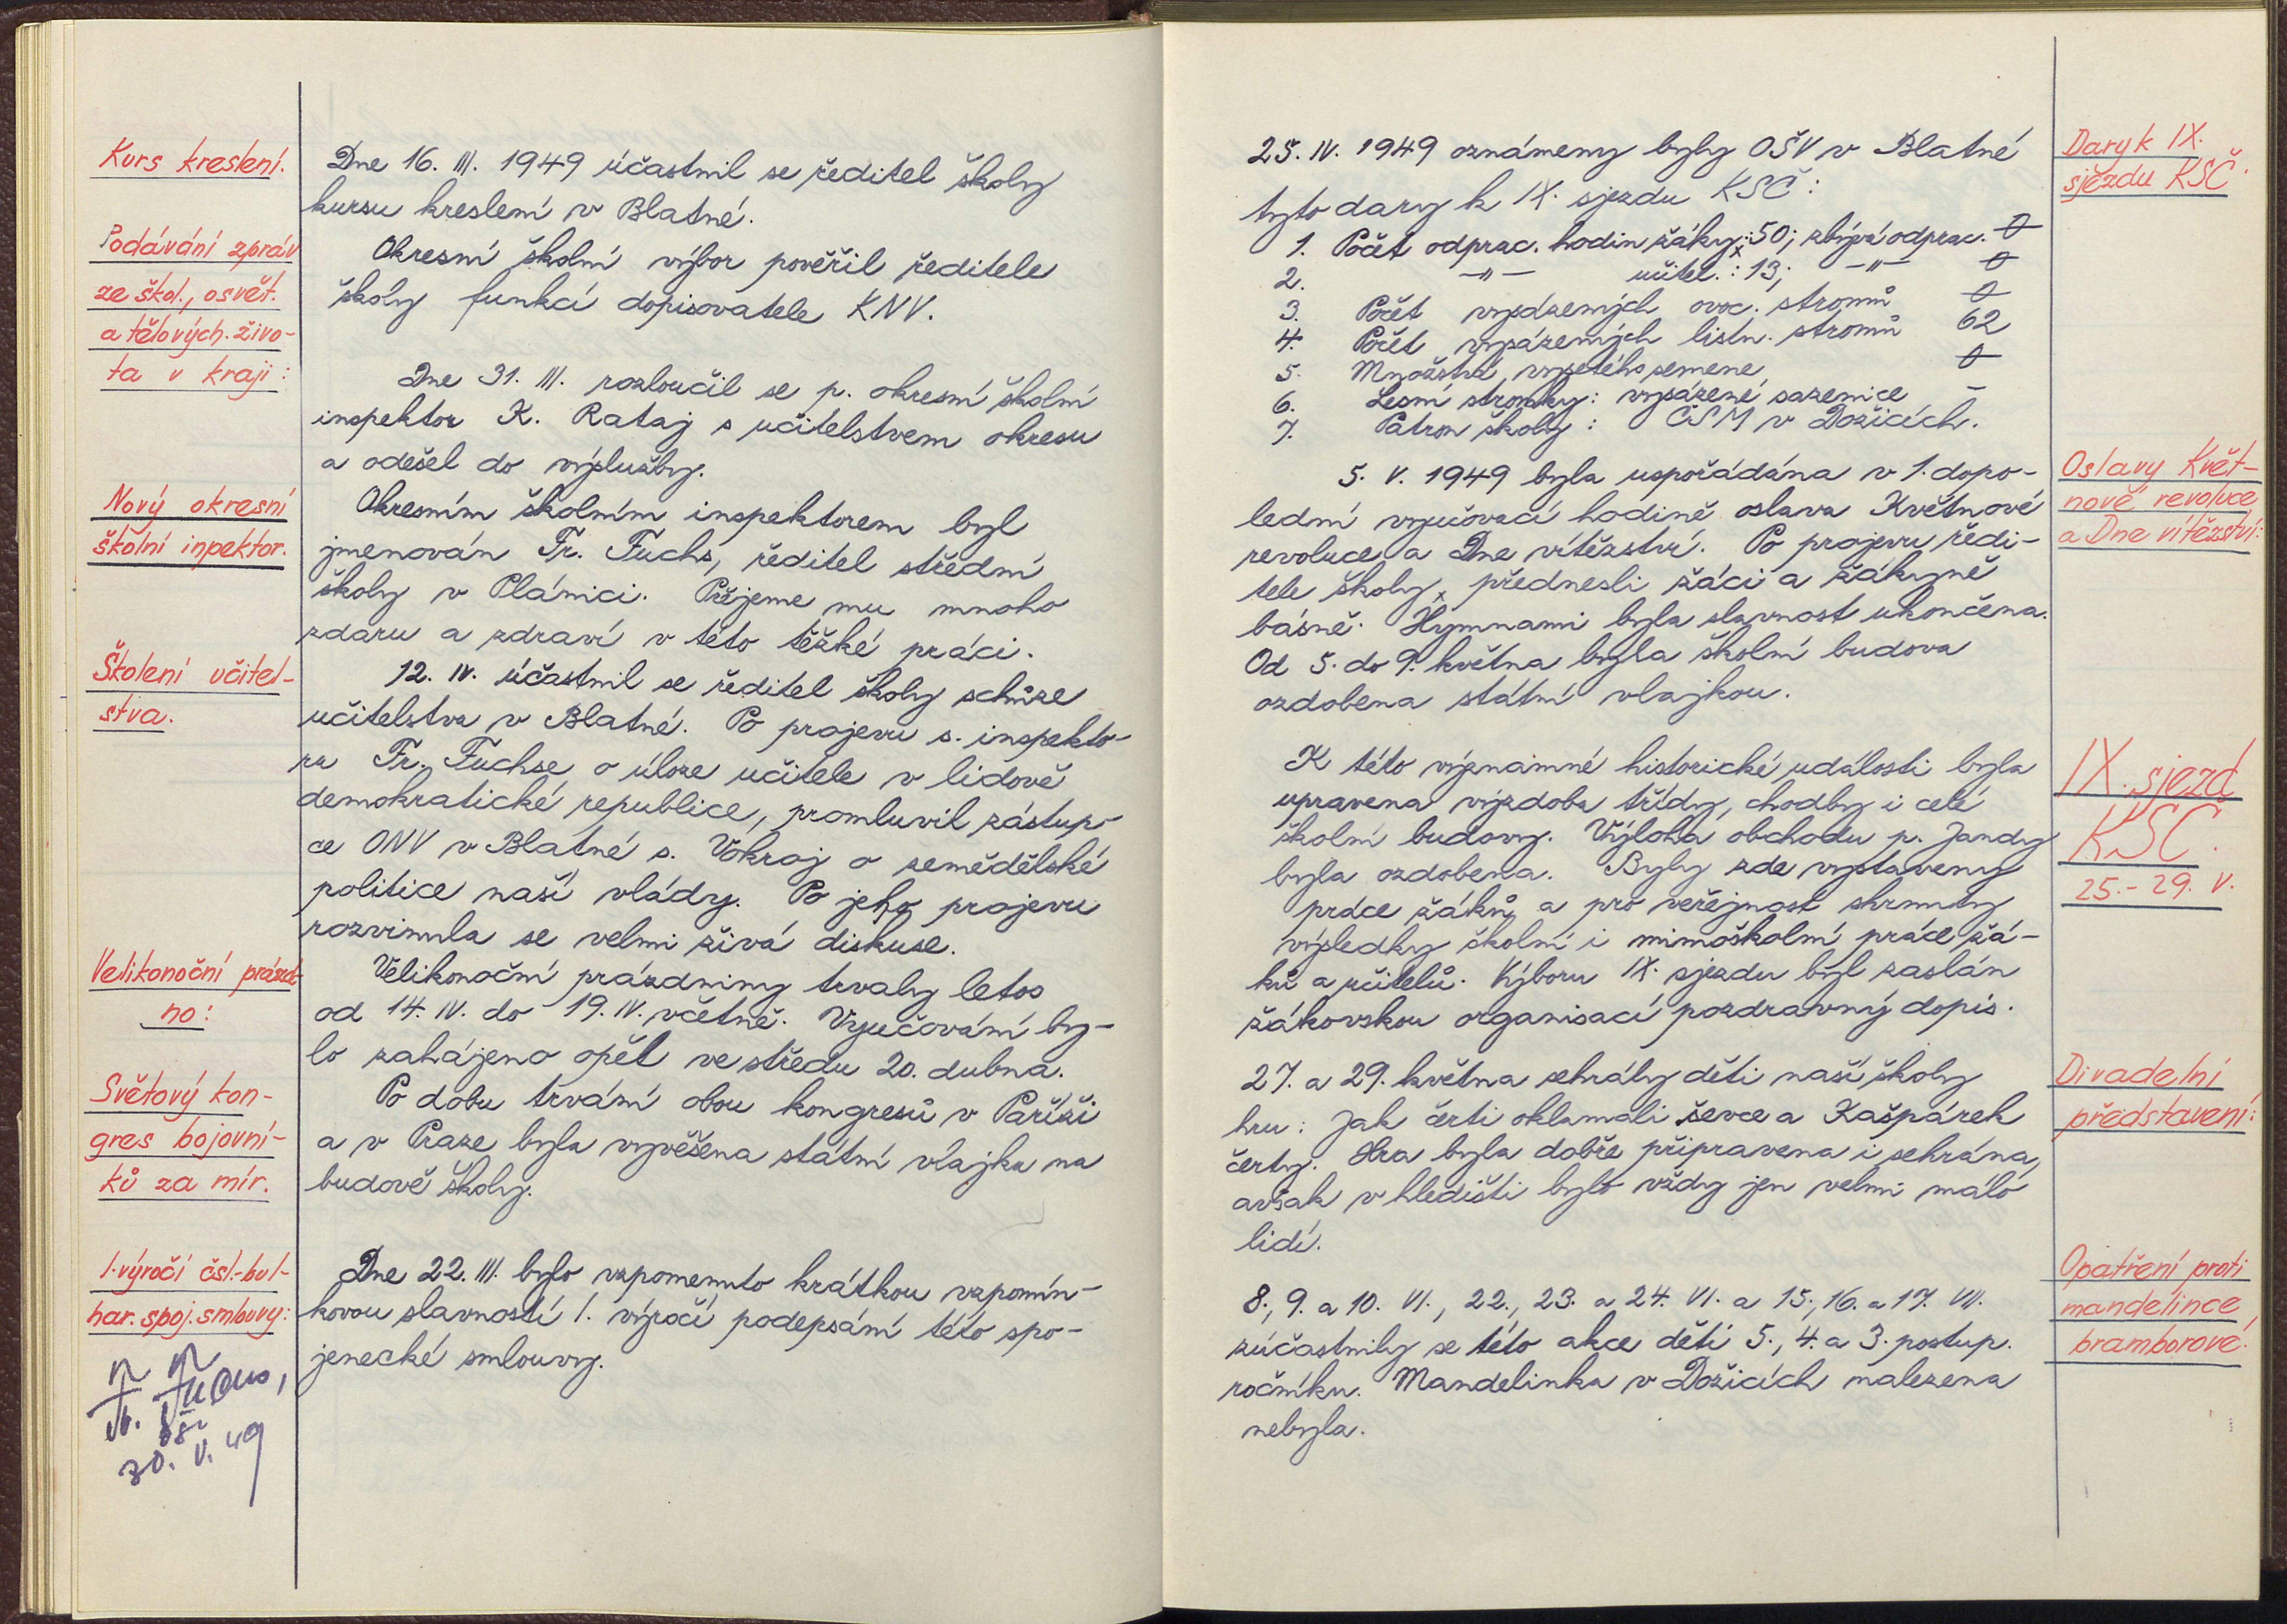 Kurs kreslení.
Dne 16. III. 1949 účastnil se ředitel školy
kursu kreslení v Blatné.
Podávání zpráv
ze škol., osvět.
a tělových. živo-
ta v kraji:
Okresní školní výbor pověřil ředitele
školy funkcí dopisovatele KNV.
Dne 31. III. rozloučil se p. okresní školní
inspektor K. Rataj s učitelstvem okresu
a odešel do výslužby.
Nový okresní
školní inpektor.
Okresním školním inspektorem byl
jmenován Fr. Fuchs, ředitel střední
školy v Plánici. Přejeme mu mnoho
zdaru a zdraví v této těžké práci.
Školení učitel-
stva.
12. IV. účastnil se ředitel školy schůze
učitelstva v Blatné. Po projevu s. inspekto-
ra Fr. Fuchse o úloze učitele v lidově
demokratické republice, promluvil zástup-
ce ONV v Blatné s. Vokroj o zemědělské
politice naší vlády. Po jeho projevu
rozvinula se velmi živá diskuse.
Velikonoční prázd-
no:
Velikonoční prázdniny trvaly letos
od 14. IV. do 19. IV. včetně. Vyučování by-
lo zahájeno opět ve středu 20. dubna.
Světový kon-
gres bojovní-
ků za mír.
Po dobu trvání obou kongresů v Paříži
a v Praze byla vyvěšena státní vlajka na
budově školy.
1. výročí čsl.-bul-
har. spoj. smlouvy:
Dne 22. III. bylo vzpomenuto krátkou vzpomín-
kovou slavností 1. výročí podepsání této spo-
jenecké smlouvy.
Fuchs,
30. V. 49
25. IV. 1949 oznámeny byly OŠV v Blatné
tyto dary k IX. sjezdu KSČ:
Dary k IX.
sjezdu KSČ.
1. Počet odprac. hodin žáky: 50; zbývá odprac. 0
2. -"- učitel.: 13; -"- 0
3. Počet vysázených ovoc. stromů 0
4. Počet vysázených listn. stromů 62
5. Množství vysetého semene 0
6. Lesní stromky: vysázené sazenice -
7. Patron školy: ČSM v Dožicích.
Oslavy Květ-
nové revoluce
a Dne vítězství:
5. V. 1949 byla uspořádána v 1. dopo-
lední vyučovací hodině oslava Květnové
revoluce a Dne vítězství. Po projevu ředi-
tele školy, přednesli žáci a žákyně
básně. Hymnami byla slavnost ukončena.
Od 5. do 9. května byla školní budova
ozdobena státní vlajkou.
IX. sjezd
KSČ.
25.-29. V.
K této významné historické události byla
upravena výzdoba třídy, chodby i celé
školní budovy. Výloha obchodu p. Jandy
byla ozdobena. Byly zde vystaveny
práce žáků a pro veřejnost shrnuty
výsledky školní i mimoškolní práce žá-
ků a učitelů. Výboru IX. sjezdu byl zaslán
žákovskou organisací pozdravný dopis.
Divadelní
představení:
27. a 29. května sehrály děti naší školy
hru: Jak čerti oklamali ševce a Kašpárek
čerty. Hra byla dobře připravena i sehrána,
avšak v hledišti bylo vždy jen velmi málo
lidí.
Opatření proti
mandelince
bramborové.
8., 9. a 10. VI., 22., 23. a 24. VI. a 15., 16. a 17. VII.
zúčastnily se této akce děti 5., 4. a 3. postup.
ročníku. Mandelinka v Dožicích nalezena
nebyla.